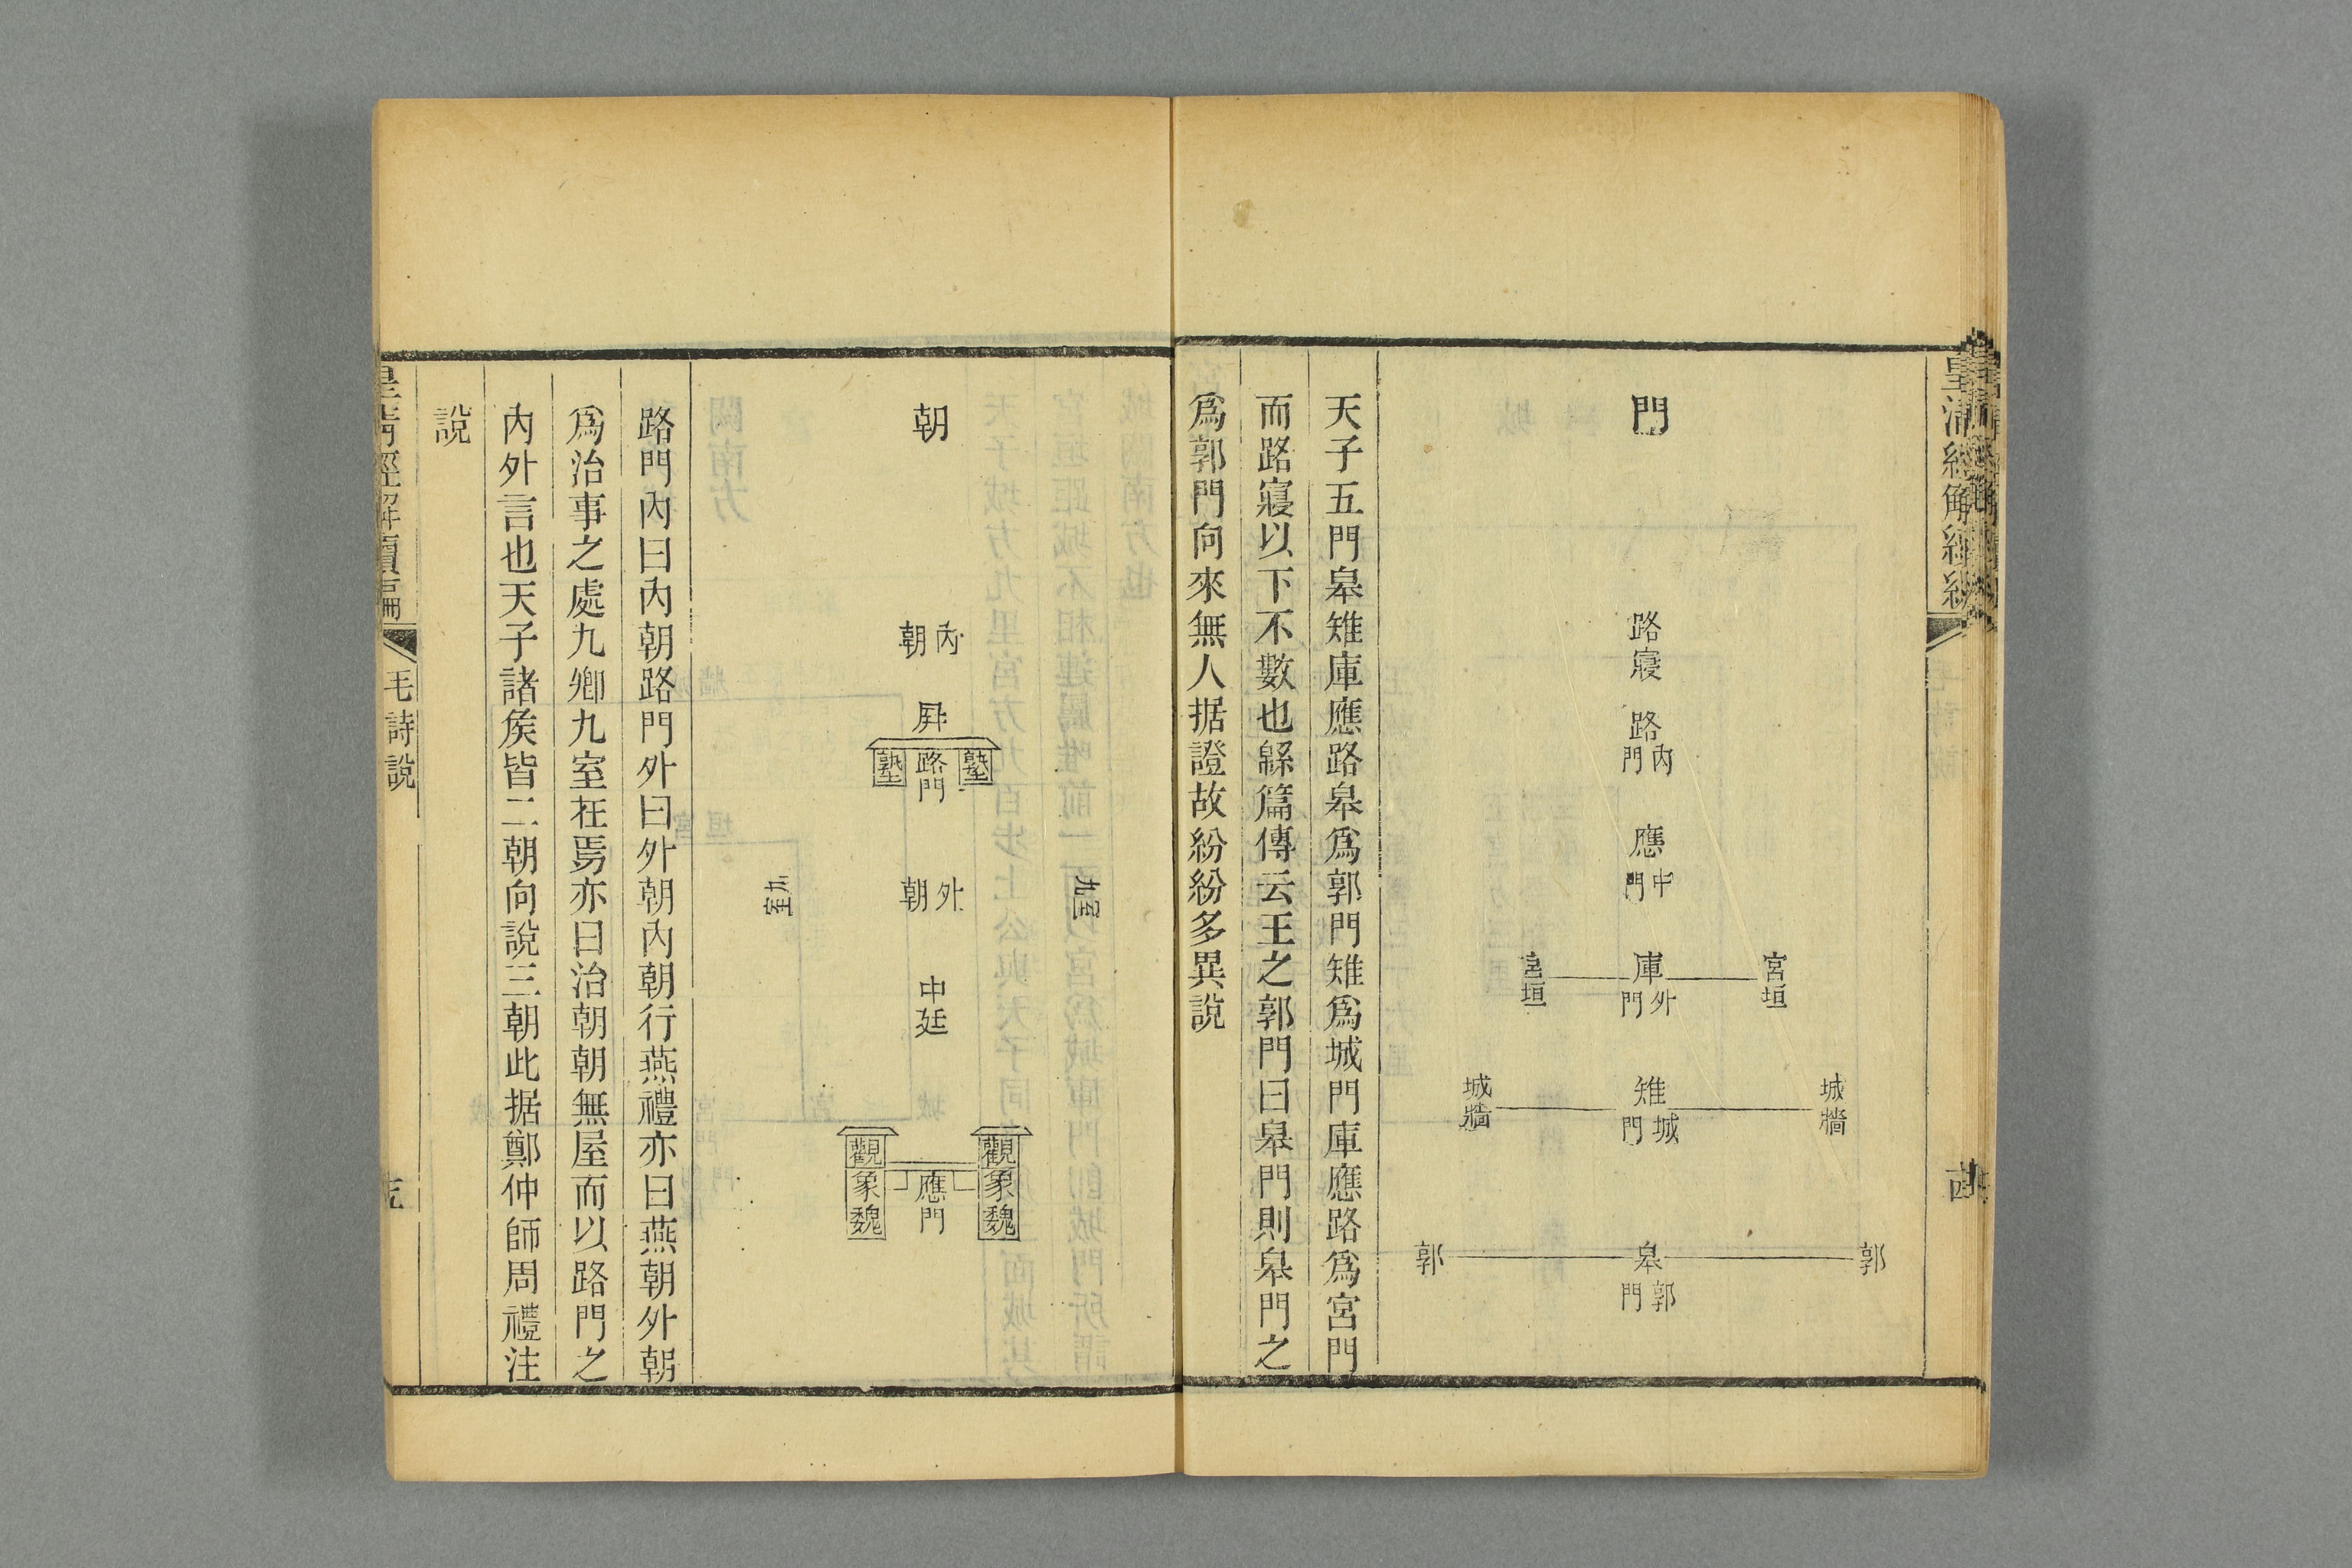 皇清經解續編
門
路寢
路
內門
應
中門
宮垣
庫
外門
宮垣
城牆
雉
城門
城牆
郭
皋
郭門
郭
天子五門皋雉庫應路皋爲郭門雉爲城門庫應路爲宮門
而路寢以下不數也緜篇傳云王之郭門曰皋門則皋門之
爲郭門向來無人据證故紛紛多異說
朝
內朝
屏
塾
路門
塾
九室
外朝
九室
中廷
觀象魏
應門
觀象魏
路門內曰內朝路門外曰外朝內朝行燕禮亦曰燕朝外朝
爲治事之處九卿九室在焉亦曰治朝朝無屋而以路門之
內外言也天子諸矦皆二朝向說三朝此据鄭仲師周禮注
說
皇清經解續編
毛詩說